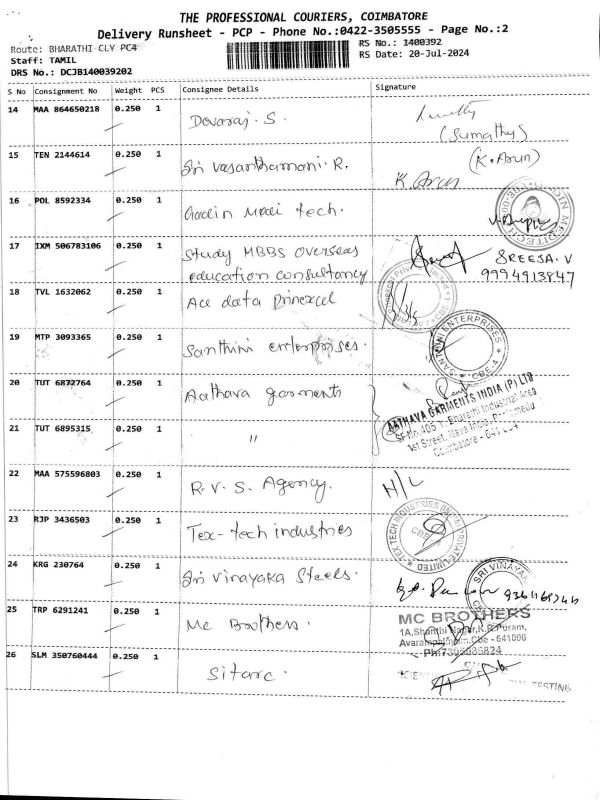 THE PROFESSIONAL COURIERS, COIMBATORE
Delivery Runsheet - PCP - Phone No.:0422-3505555 - Page No.:2
Route: BHARATHI CLY PC4
RS No.: 1400392
Staff: TAMIL
RS Date: 20-Jul-2024
DRS No.: DCJB140039202
S No Consignment No Weight PCS Consignee Details Signature
14 MAA 864650218 0.250 1 Devaraj. S.
(Sumathy)
15 TEN 2144614 0.250 1 Sri Vasanthamani. R. (K. Arun)
K. Arun
16 POL 8592334 0.250 1 tech.
17 IXM 506783106 0.250 1 Study MBBS overseas SREEJA. V
education consultancy 9994913847
18 TVL 1632062 0.250 1 Ace data
19 MTP 3093365 0.250 1 Santhini enterprises.
20 TUT 6872764 0.250 1 Aathava garments
AATHAVA GARMENTS INDIA (P) LTD
SF No 405 T. Bharathi Industrial Area
1st Street,
Coimbatore - 641 004
21 TUT 6895315 0.250 1 "
22 MAA 575596803 0.250 1 R. V. S. Agency. H/L
23 RJP 3436503 0.250 1 Tex-tech industries
TEX TECH INDUSTRIES (INDIA) PRIVATE LIMITED
24 KRG 230764 0.250 1 Sri Vinayaka Steels.
SRI VINAYAK
25 TRP 6291241 0.250 1 Mc Brothers.
MC BROTHERS
1A,Shanthi Nagar,K.R.Puram,
Avarampalayam,Cbe - 641006
26 SLM 350760444 0.250 1 Sitarc.
TESTING